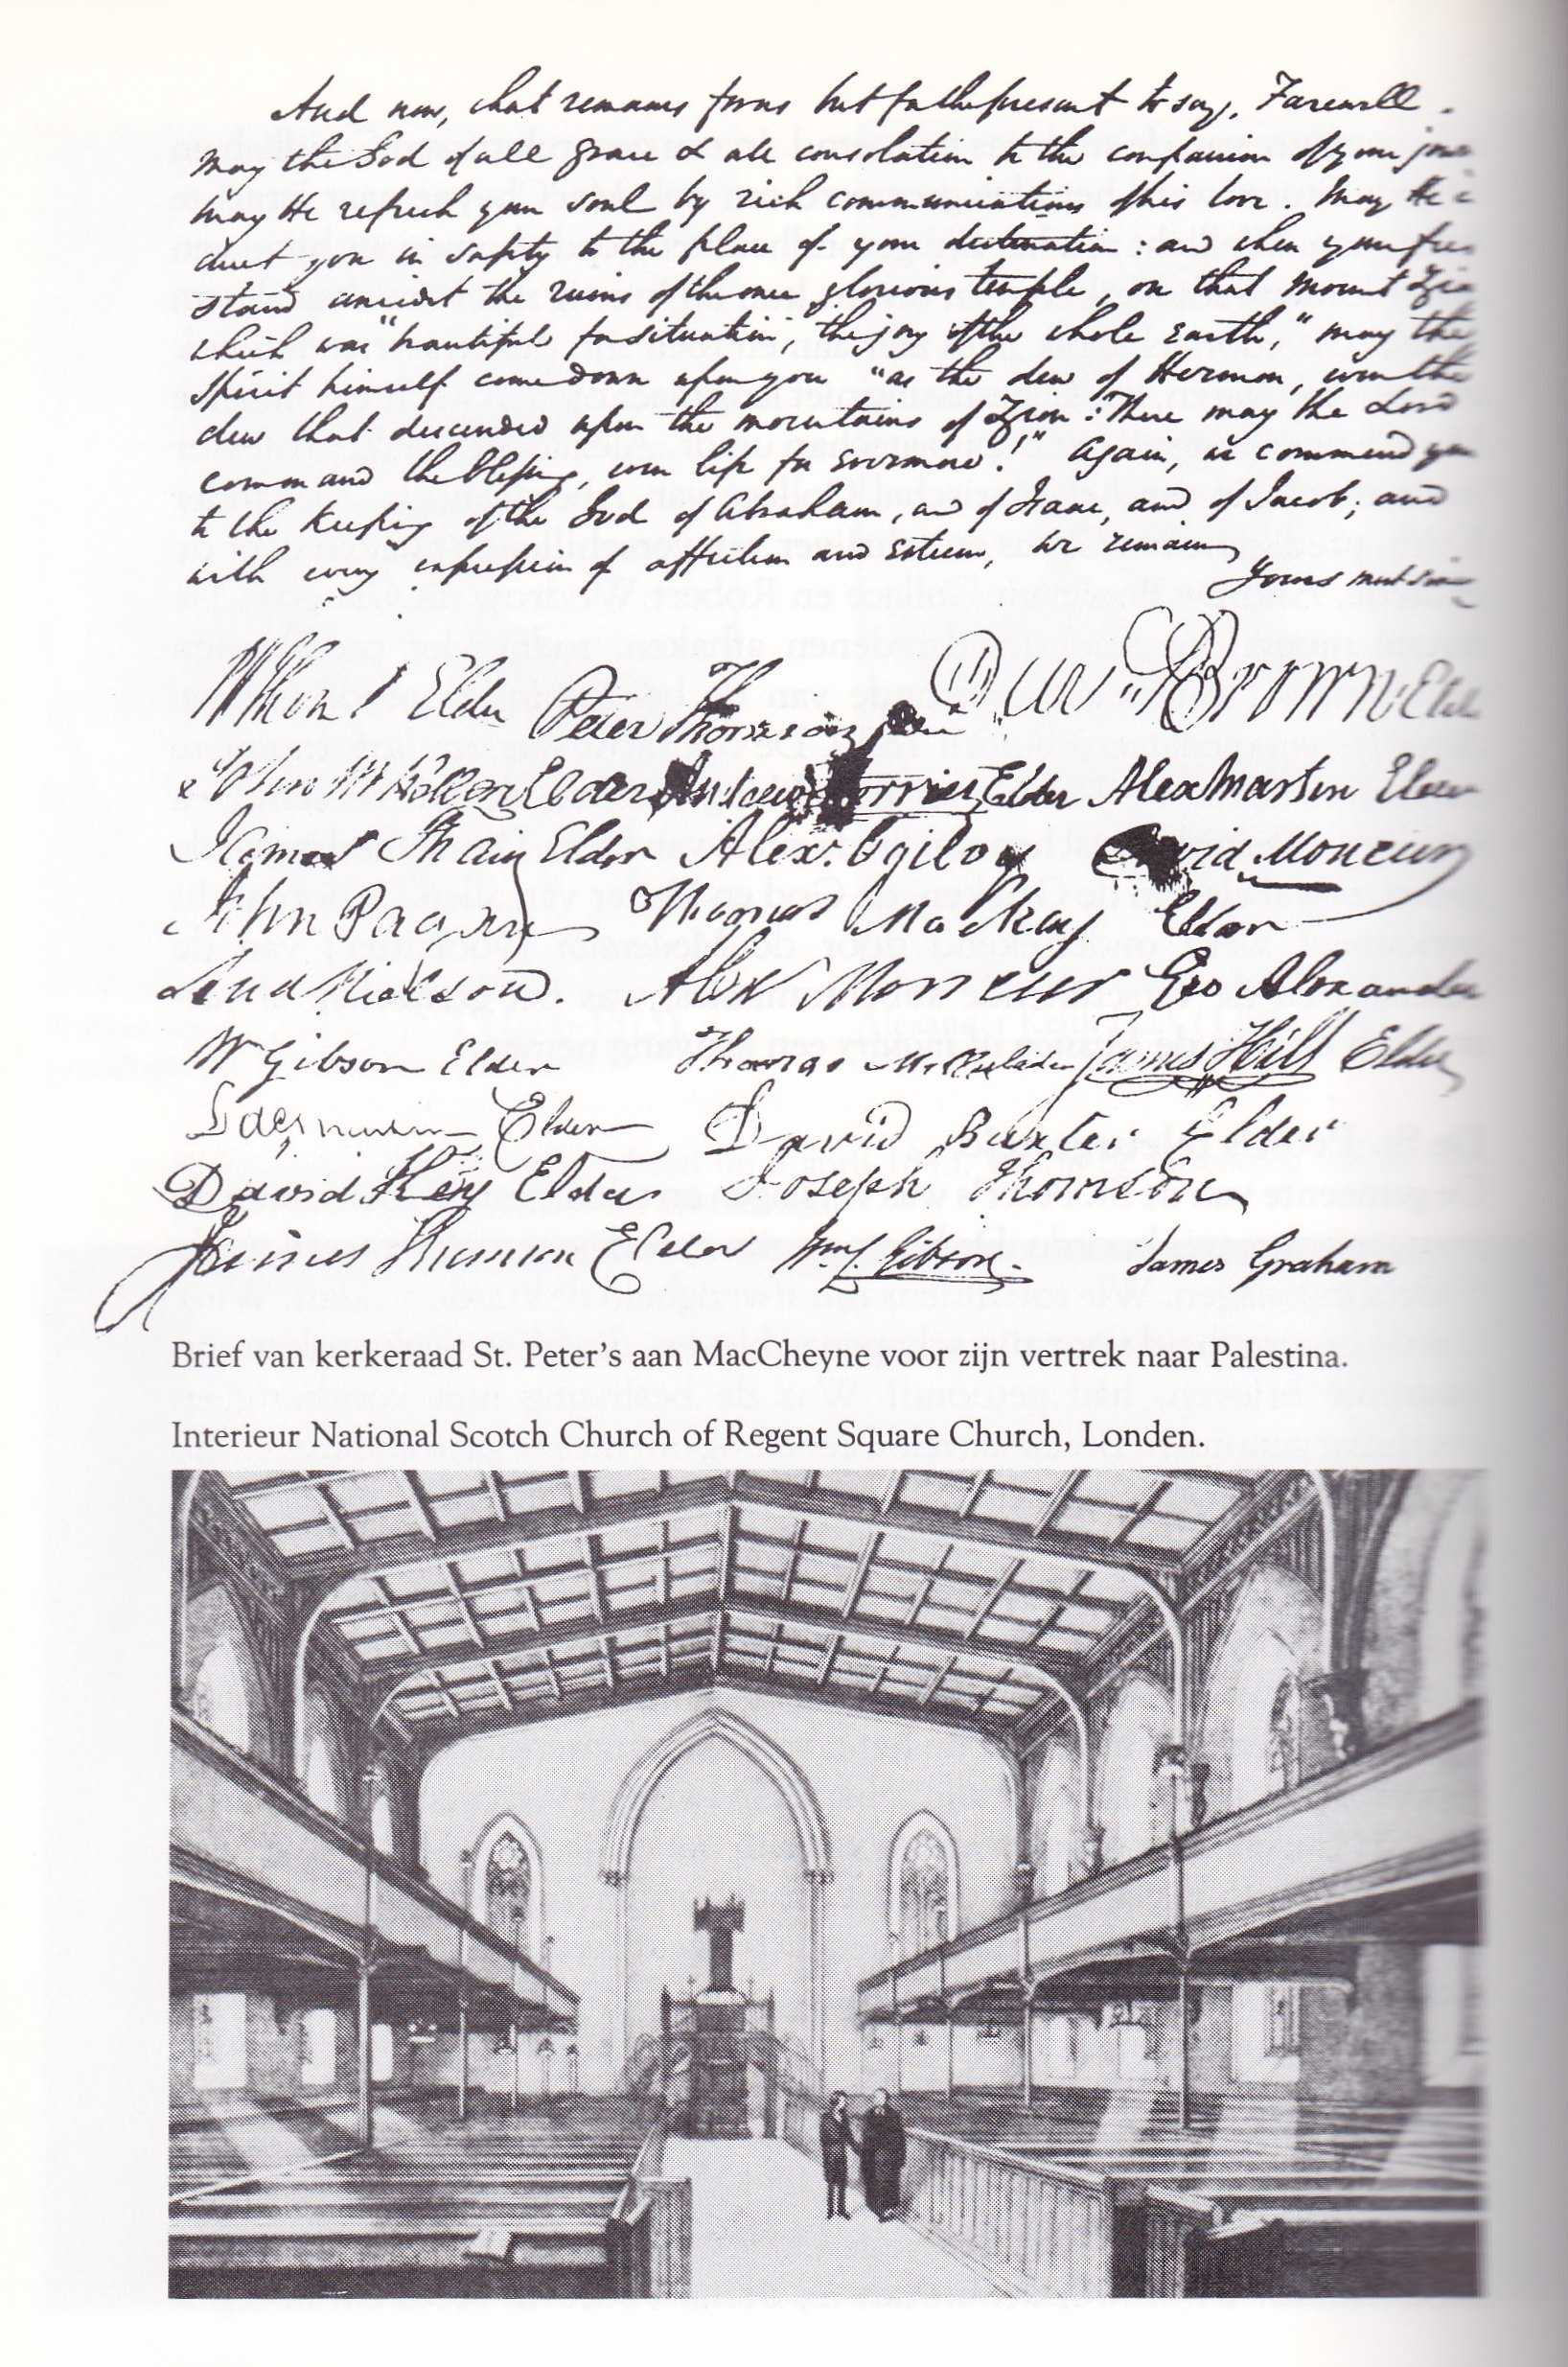 And now, what remains for us but for the present to say, Farewell.
May the God of all grace & all consolation be the companion of your
may He refresh your soul by rich communications of his love. May He
duct you in safety to the place of your destination: and when your
stand amidst the ruins of the once glorious temple, on that Mount
which was "beautiful for situation, the joy of the whole Earth," may the
Spirit himself come down upon you "as the dew of Hermon, even the
dew that descended upon the mountains of Zion: There may the Lord
command the blessing, even life for evermore!" Again, we commend you
to the Keeping of the God of Abraham, and of Isaac, and of Jacob; and
with every expression of affection and esteem, we remain
Yours most
Elder Peter Thomson Brown
John Elder Andrew Elder Alex Martin Elder
James Elder Alex. Ogilvy David Moncur
John Thomas MacKay Elder
Alex Moncur Geo Alexander
W Gibson Elder Thomas James Hill Elder
Elder David Baxter Elder
David Key Elder Joseph Thomson
James Elder Wm Gibson. James Graham
Brief van kerkeraad St. Peter's aan MacCheyne voor zijn vertrek naar Palestina.
Interieur National Scotch Church of Regent Square Church, Londen.